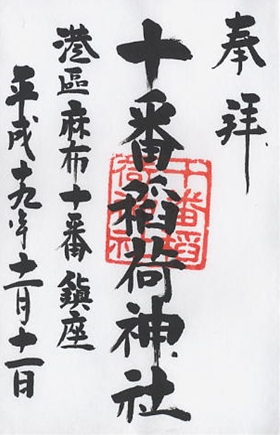 奉拝
十番稲荷神社
十番稲荷神社
港區麻布十番鎮座
平成十九年十一月十一日